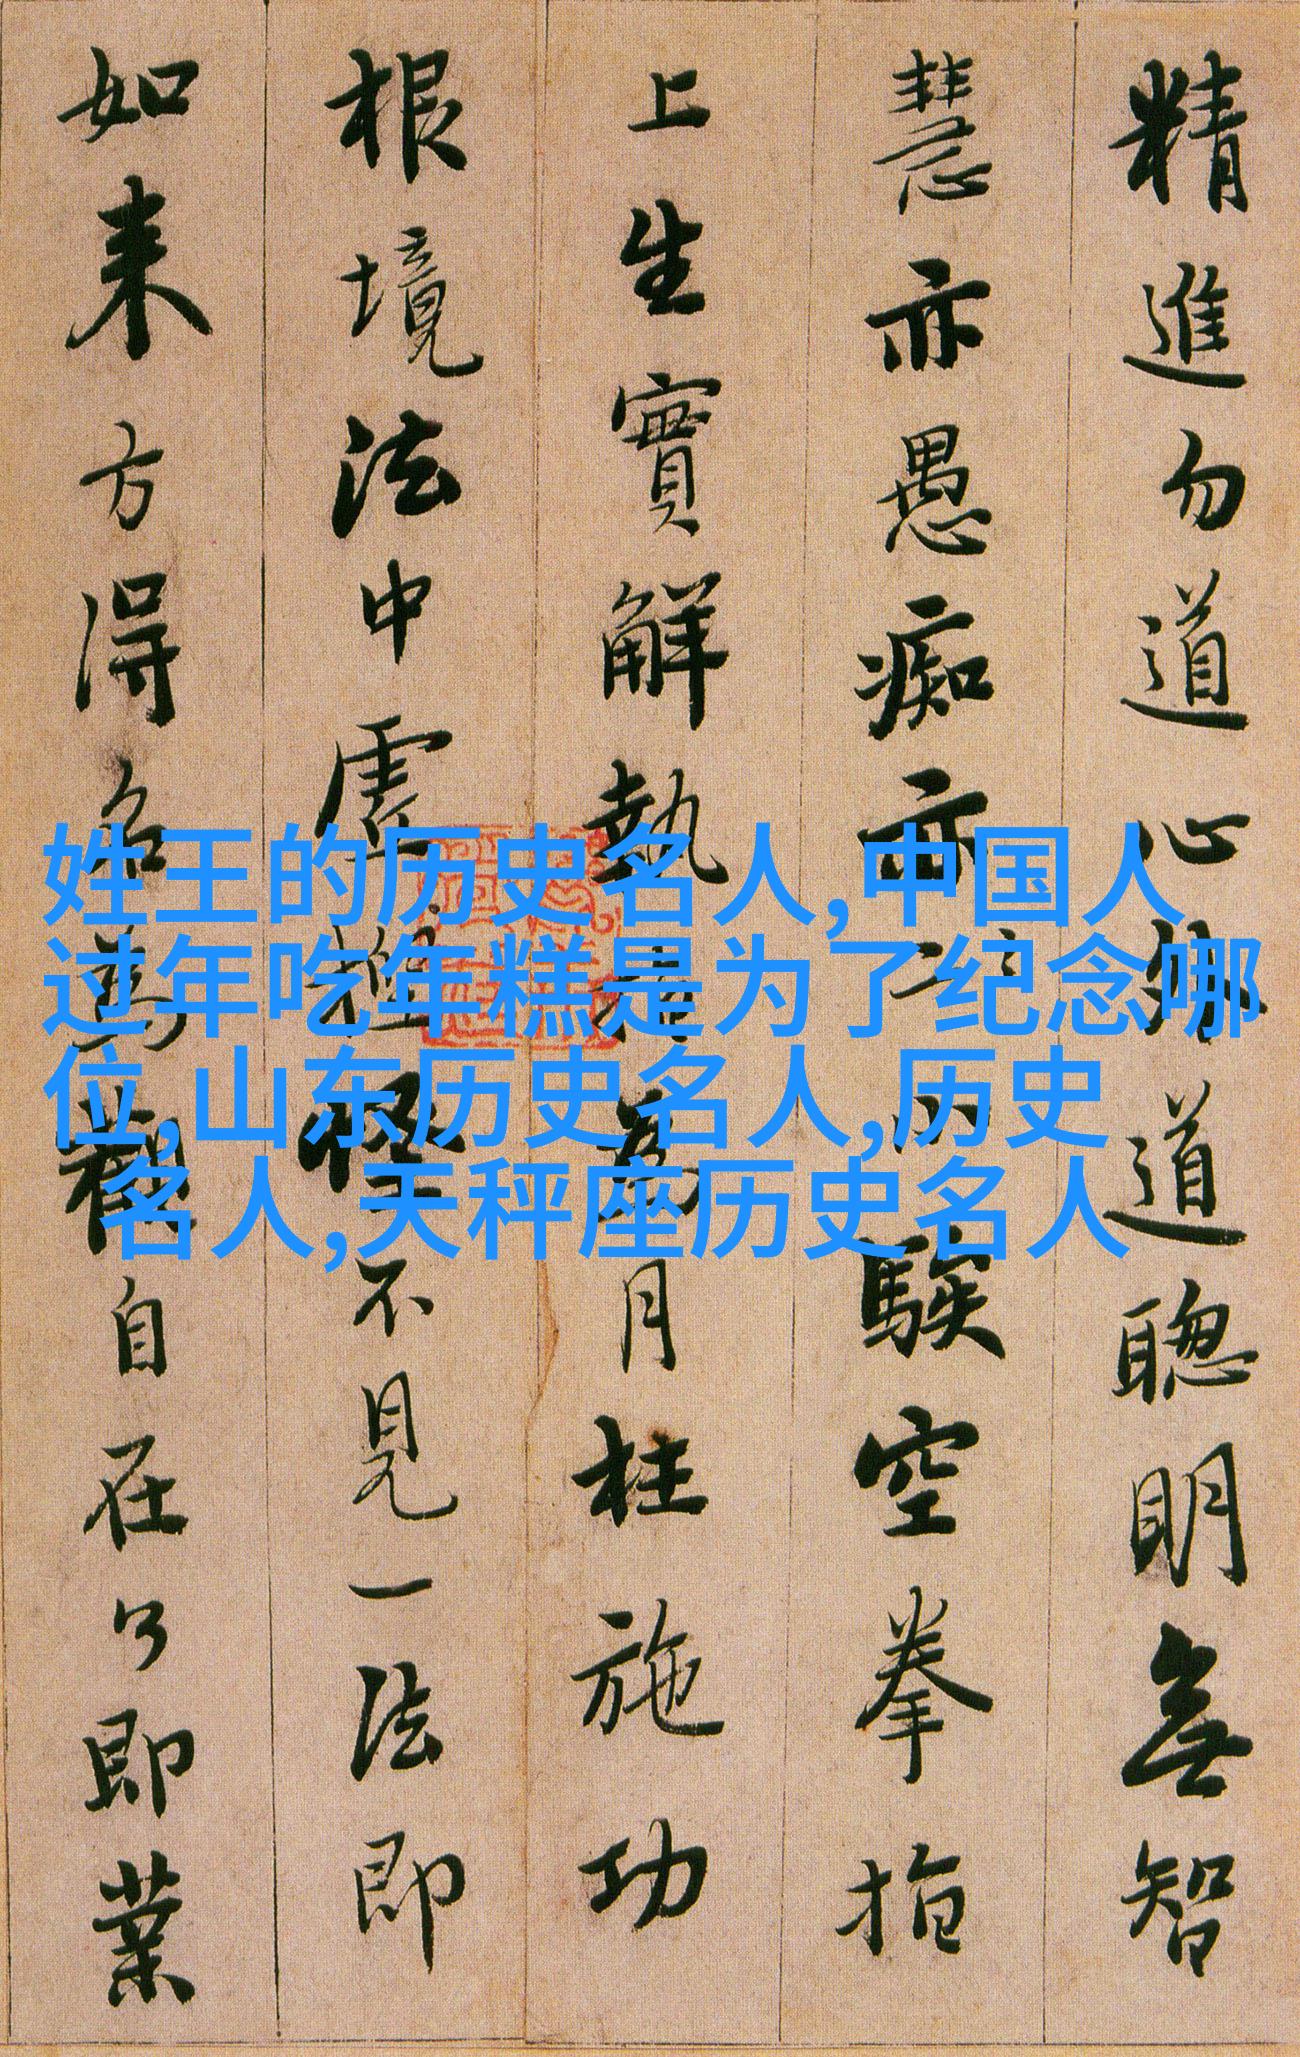 精進勿道心外道聰明無智
慧亦愚痴亦小騃空拳指
上生實解執指為月枉施功
根境法中虛捏怪不見一法即
如来方得名為觀自在了即業
姓王的历史名人,中国人
过年吃年糕是为了纪念哪
位,山东历史名人,历史
名人,天秤座历史名人